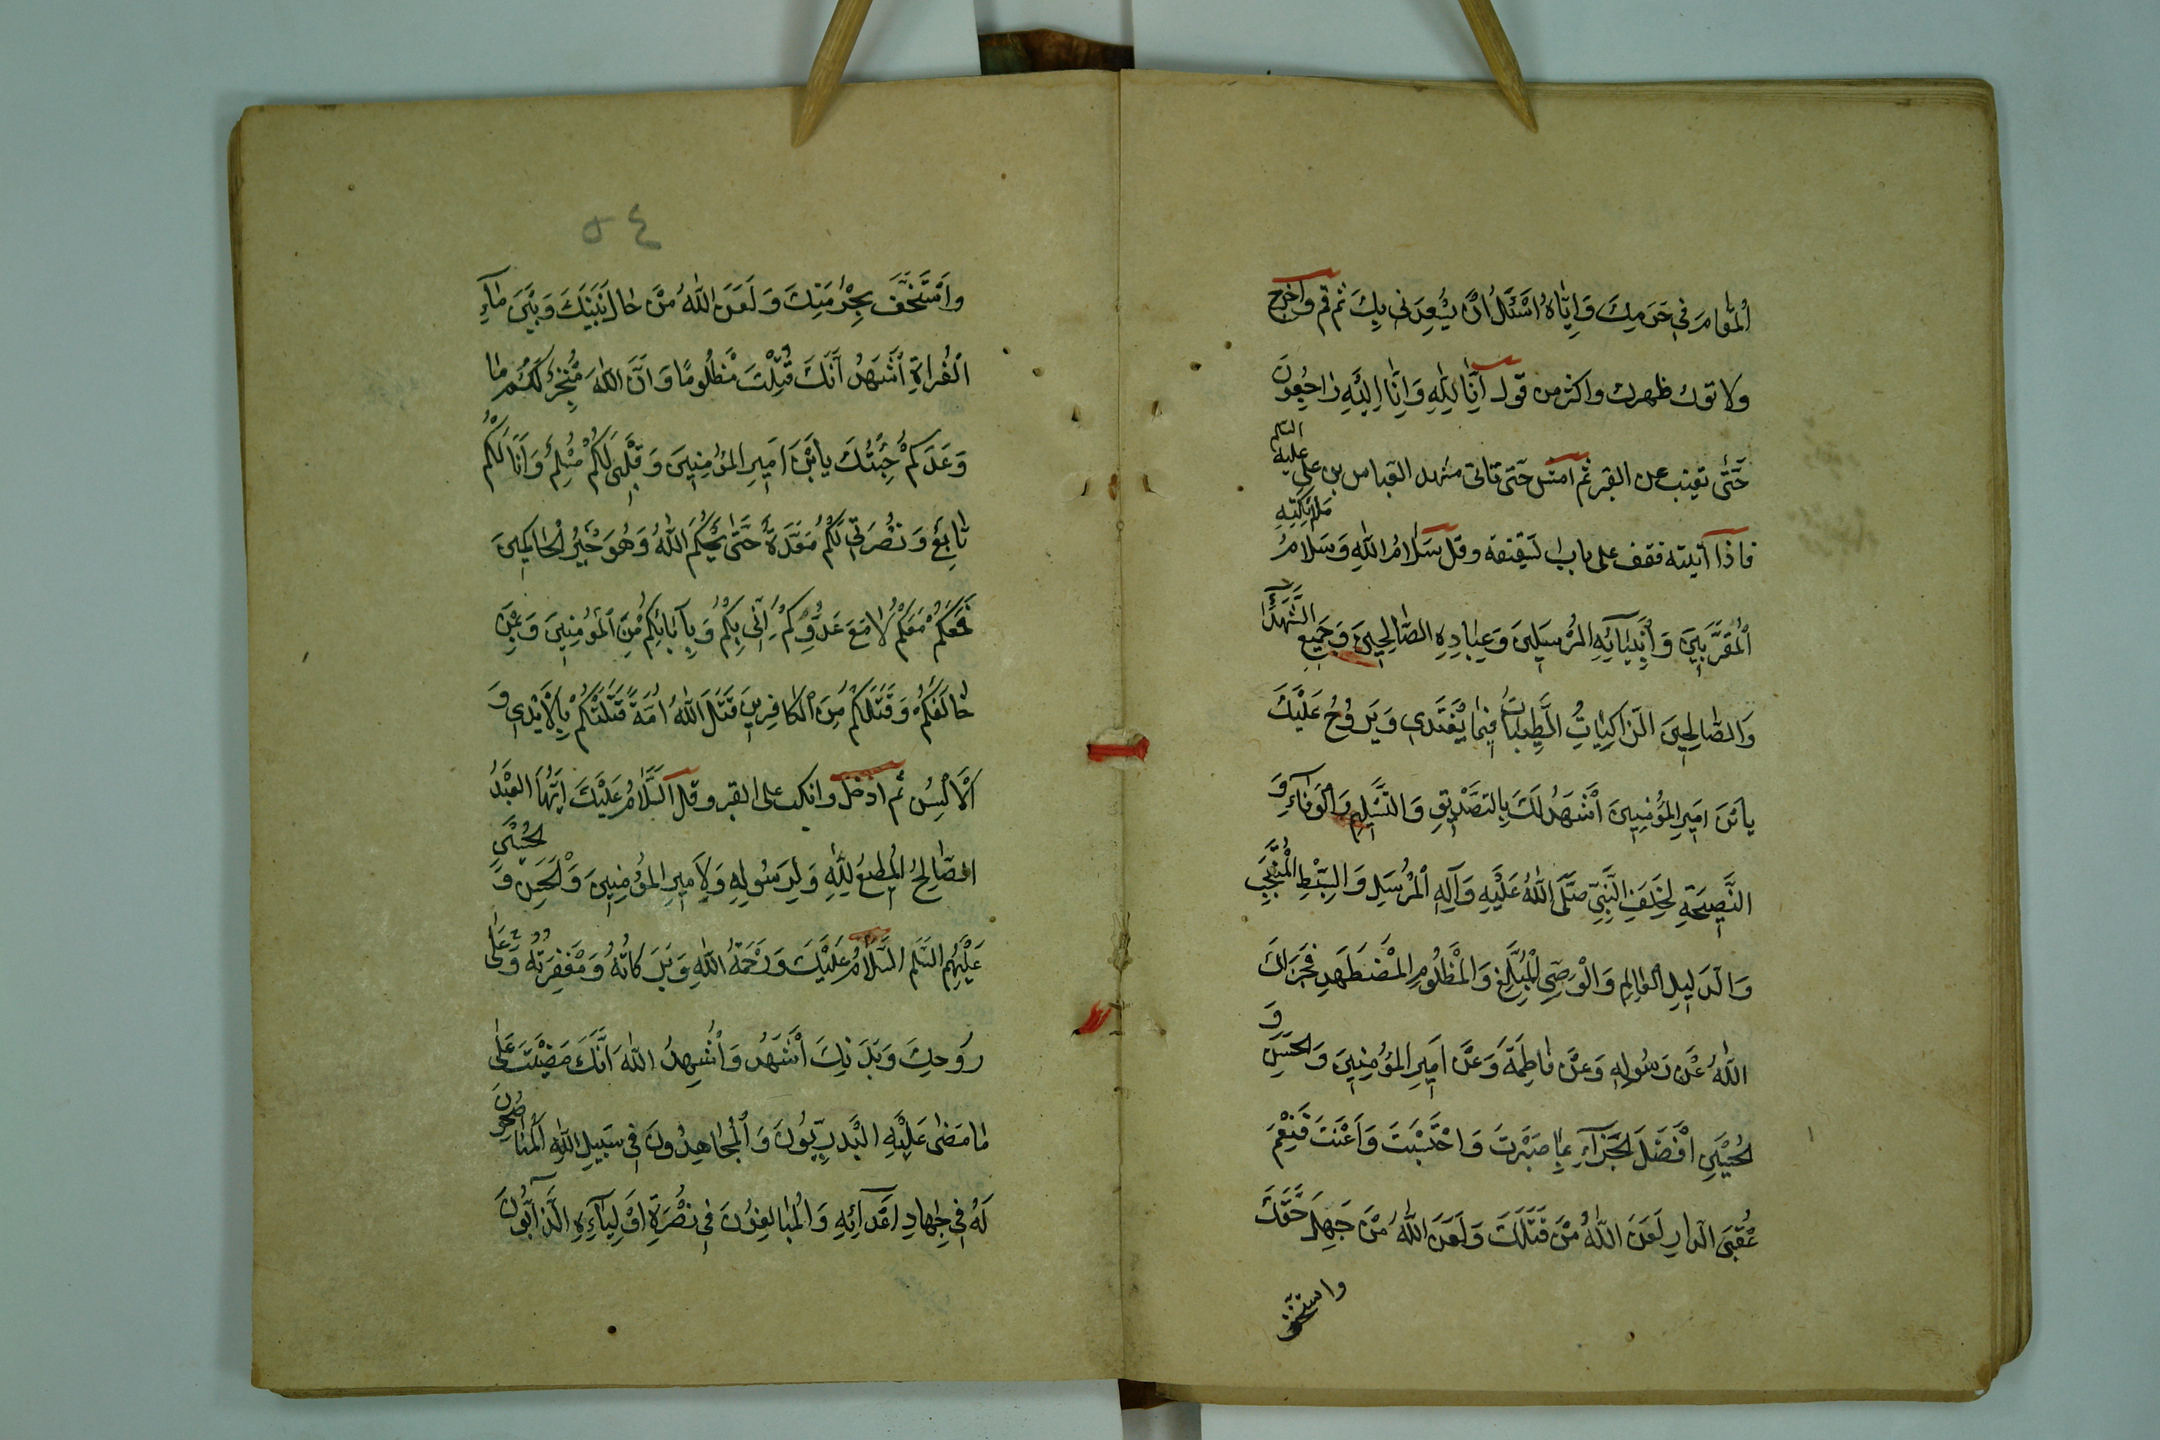 المقام في حرمك وإياه أسئل أن يسعدني بك ثم قم واخرج
ولا تول ظهرك واكثر من قول إنا لله وإنا إليه راجعون
حتى تغيب عن القبر ثم امش حتى تاتي مشهد العباس بن علي عليه السلم
فاذا آتيته فقف على باب السقيفة وقل سلام الله وسلام ملائكته
المقربين وأنبيائه المرسلين وعباده الصالحين وجميع الشهدآء
والصالحين الزاكيات الطيبات فيما يغتدي ويروح عليك
يابن امير المؤمنين أشهد لك بالتصديق والتسليم والوفاء و
النصيحة لخلف النبي صلى الله عليه وآله المرسل والسبط المنتجب
والدليل العالم والوصي المبلغ والمظلوم المضطهد فجزاك
الله عن رسوله وعن فاطمة وعن امير المؤمنين والحسن و
الحسين أفضل الجزآء بما صبرت واحتسبت وأعنت فنعم
عقبى الدار لعن الله من قتلك ولعن الله من جهل حقك
واستخف
٥٤
واستخف بحرمتك ولعن الله من حال بينك وبين مآء
الفراة أشهد أنك قتلت مظلوما وأن الله منجز لكم ما
وعدكم جئتك يابن امير المؤمنين وقلبي لكم مسلم وأنا لكم
تابع ونصرتي لكم معدة حتى يحكم الله وهو خير الحاكمين
فمعكم معكم لا مع عدوكم إني بكم وبآبائكم من المؤمنين وبمن
خالفكم وقتلكم من الكافرين قتل الله امة قتلتكم بالأيدي و
الألسن ثم ادخل وانكب على القبر وقل السلام عليك ايها العبد
الصالح المطيع لله ولرسوله ولأمير المؤمنين والحسن و الحسين
عليهم السلم السلام عليك ورحمة الله وبركاته ومغفرته وعلى
روحك وبدنك أشهد وأشهد الله انك مضيت على
ما مضى عليه البدريون والمجاهدون في سبيل الله المناصحون
له في جهاد اعدآئه والمبالغون في نصرة اوليآءه الذابون